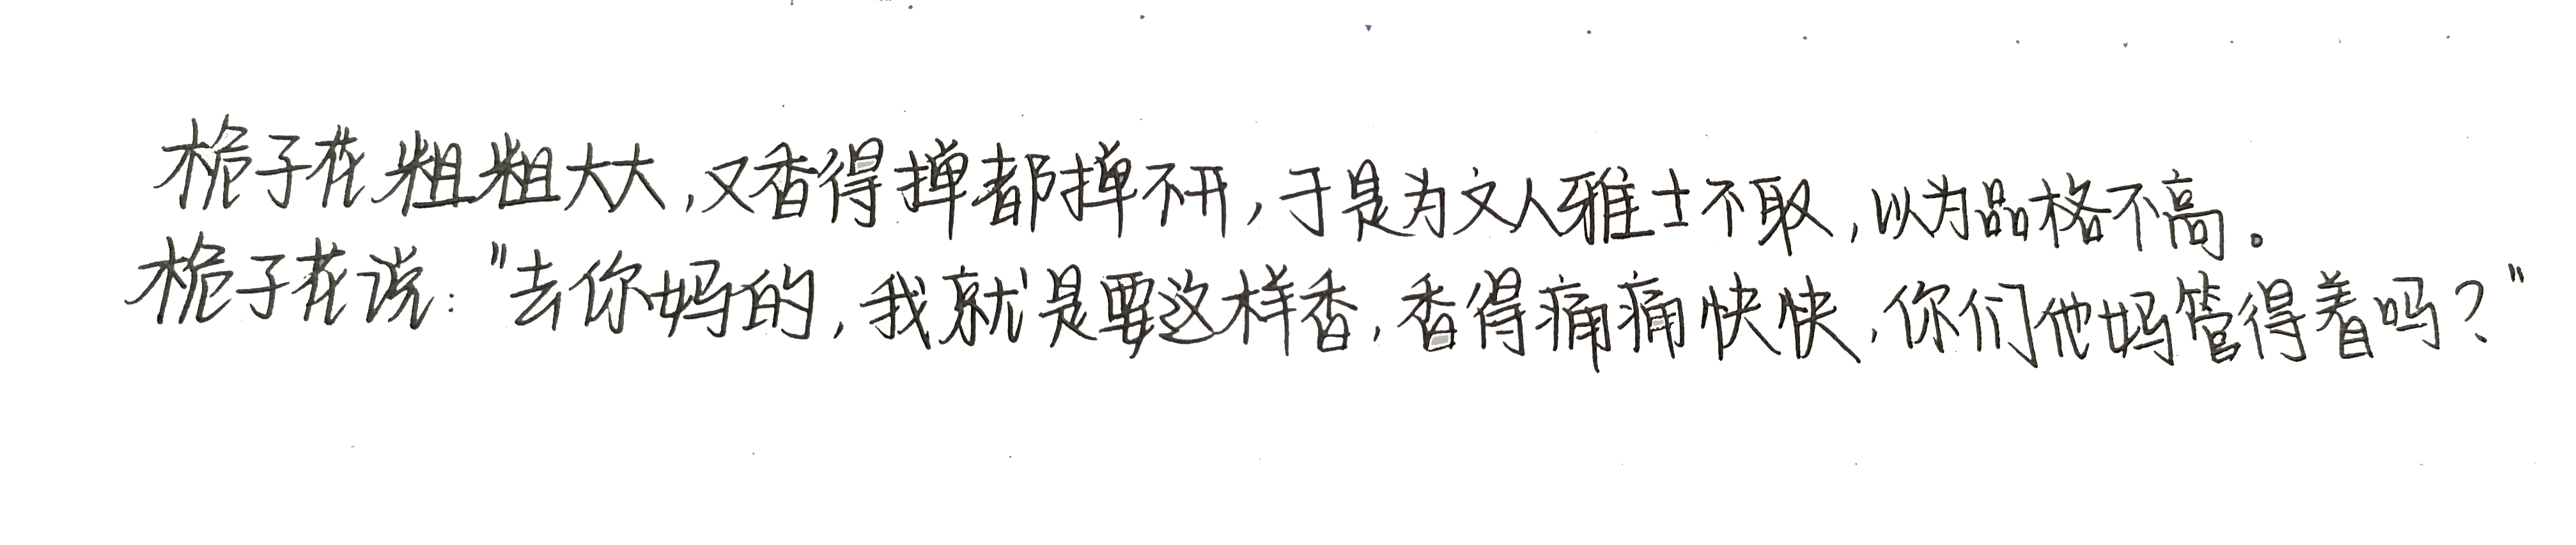 栀子花粗粗大大,又香得掸都掸不开,于是为文人雅士不取,以为品格不高。
栀子花说:"去你妈的,我就是要这样香,香得痛痛快快,你们他妈管得着吗?"